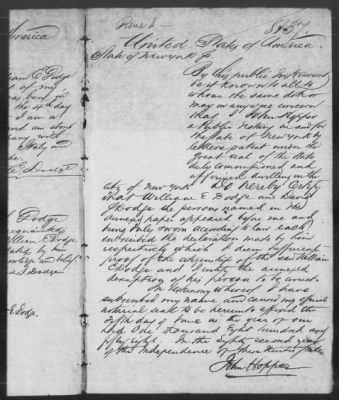 June 6
America
United States of America
State of New York
By this public Instrument
be it known to all to
whom the same doth or
may in anywise concern
that I John Hopper
a Public Notary in and for
the State of New York by
letters patent under the
Great seal of the State
duly commissioned and
affirmed dwelling in the
City of New York Do hereby Certify
that William E Dodge and David
Dodge the persons named in the
paper appeared before me and
being duly sworn according to law each
subscribed the declarations made by him
respectively which I deem sufficient
proof of the citizenship of the said William
E Dodge and I certify the annexed
description of his person to be correct
In testimony whereof I have
subscribed my name and caused my official
notarial seal to be hereunto affixed the
fifth day of June in the year of our
Lord One thousand Eight hundred and
fifty eight. In the Eighty second year
of the Independence of these United States
John Hopper
iam E Dodge
of my
in the 4th day
I am a
and am about
Italy and
Dodge
William E Dodge
E Dodge